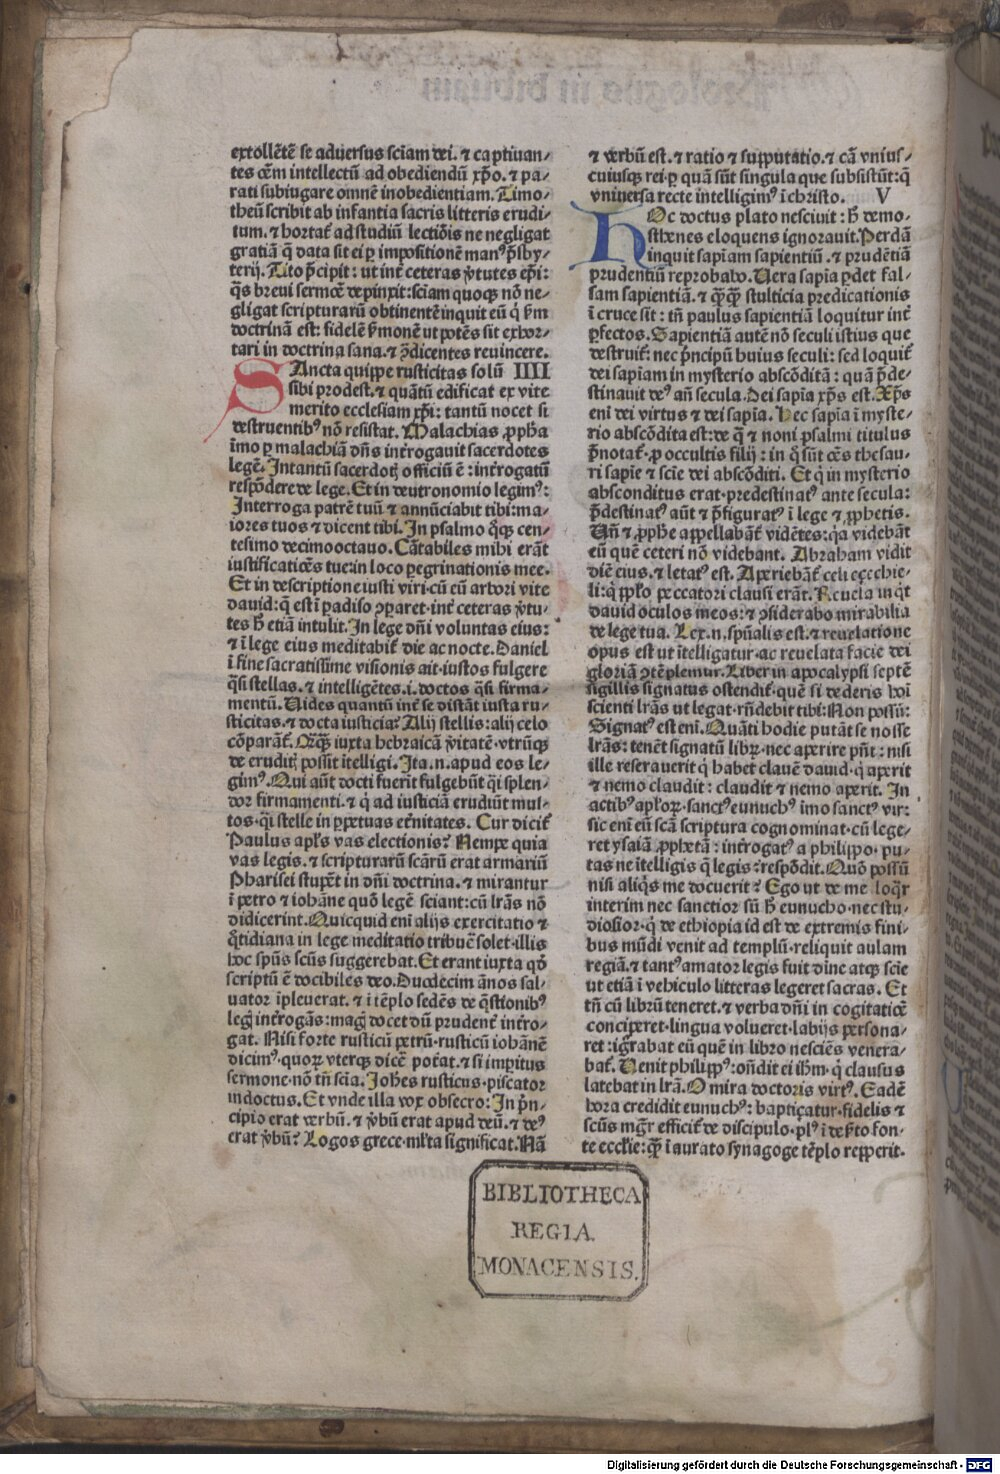 extollētē se adversus sciam dei. ⁊ captiuan-
tes oēm intellectū ad obediendū xp̄o. ⁊ pa-
rati subiugare omnē inobedientiam. Timo-
theū scribit ab infantia sacris litteris erudi-
tum. ⁊ hortat̄ ad studiū lectiōis ne negligat
gratiā q̄ data sit ei ꝑ impositionē manꝰ p̄sby-
terij. Tito p̄cipit: ut int̄ ceteras v̄tutes ep̄i:
q̄s breui sermōe depinxit: sciam quoqꝫ nō ne-
gligat scripturarū obtinentē inquit eū q̄ ẜm
doctrinā est: fidelē ẜmonē ut potēs sit exhor-
tari in doctrina sana. ⁊ ꝯdicentes reuincere.
SAncta quippe rusticitas solū IIII
sibi prodest. ⁊ quātū edificat ex vite
merito ecclesiam xp̄i: tantū nocet si
destruentibꝰ nō resistat. Malachias ꝓph̄a
īmo ꝑ malachiā dn̄s int̄rogauit sacerdotes
legē. In tantū sacerdotꝫ officiū ē: int̄rogatū
respōdere de lege. Et in deutronomio legimꝰ:
Interroga patrē tuū ⁊ annūciabit tibi: ma-
iores tuos ⁊ dicent tibi. In psalmo q̄qꝫ cen-
tesimo decimooctauo. Cātabiles mihi erāt
iustificatiōes tue: in loco ꝑegrinationis mee.
Et in descriptione iusti viri. cū eū arbori vite
dauid: q̄ est ī padiso ꝯparet. int̄ ceteras v̄tu-
tes h̄ etiā intulit. In lege dn̄i voluntas eius:
⁊ ī lege eius meditabit̄ die ac nocte. Daniel
ī fine sacratissime visionis ait. iustos fulgere
q̄si stellas. ⁊ intelligētes .i. doctos q̄si firma-
mentū. Uides quantū int̄ se distāt iusta ru-
sticitas. ⁊ docta iusticia? Alij stellis: alij celo
cōparāt̄. Qꝫqꝫ iuxta hebraicā v̄itatē vtrūqꝫ
de eruditꝫ possit ītelligi. Ita .n. apud eos le-
gimꝰ. Qui aūt docti fuerīt fulgebūt q̄i splen-
dor firmamenti. ⁊ q̄ ad iusticiā erudiūt mul-
tos. q̄i stelle in ꝑpetuas et̄nitates. Cur dicit̄
Paulus apl̄s vas electionis? Nempe quia
vas legis. ⁊ scripturarū scārū erat armariū
Pharisei stupēt in dn̄i doctrina. ⁊ mirantur
ī petro ⁊ iohāne quō legē sciant: cū lr̄as nō
didicerint. Quicquid enī alijs exercitatio ⁊
q̄tidiana in lege meditatio tribuē solet. illis
hoc spūs scūs suggerebat. Et erant iuxta qd̄
scriptū ē docibiles deo. Duodecim ānos sal-
uator īpleuerat. ⁊ ī tēplo sedēs de q̄stionibꝰ
legꝫ int̄rogās: magꝫ docet dū prudent̄ int̄ro-
gat. Nisi forte rusticū petrū. rusticū iohānē
dicimꝰ. quoꝝ vterqꝫ dicē potat̄. ⁊ si imp̄itus
sermone. nō tn̄ scīa. Joh̄es rusticus. piscator
indoctus. Et vnde illa vox obsecro: In p̄n-
cipio erat verbū. ⁊ v̄bū erat apud deū. ⁊ deꝰ
erat v̄bū? Logos grece. ml̄ta significat. Nā
⁊ verbū est. ⁊ ratio ⁊ supputatio. ⁊ cā vnius-
cuiusqꝫ rei ꝑ quā sūt singula que subsistūt: q̄
vniuersa recte intelligimꝰ ī christo. V
HOc doctus plato nesciuit: h̄ demo-
sthenes eloquens ignorauit. Perdā
inquit sapiam sapientiū. ⁊ prudētiā
prudentiū reprobabo. Uera sapia ꝑdet fal-
sam sapientiā. ⁊ qꝫqꝫ stulticia predicationis
ī cruce sit: tn̄ paulus sapientiā loquitur int̄
ꝑfectos. Sapientiā autē nō seculi istius que
destruit̄: nec p̄ncipū huius seculi: sed loquit̄
dei sapiam in mysterio abscōditā: quā p̄de-
stinauit deꝰ añ secula. Dei sapia xp̄s est. Xp̄s
enī dei virtus ⁊ dei sapīa. Hec sapīa ī myste-
rio abscōdita est: de q̄ ⁊ noni psalmi titulus
p̄notat̄. ꝓ occultis filij: in q̄ sūt oēs thesau-
ri sapīe ⁊ scīe dei abscōditi. Et q̄ in mysterio
absconditus erat. predestinatꝰ ante secula:
p̄destinatꝰ aūt ⁊ p̄figuratꝰ ī lege ⁊ ꝓphetis.
Uñ ⁊ ꝓph̄e appellabāt̄ vidētes: qa videbāt
eū quē ceteri nō videbant. Abraham vidit
diē eius. ⁊ letatꝰ est. Aperiebāt̄ celi eçechie-
li: q̄ pplo peccatori clausi erāt. Reuela inqt̄
dauid oculos meos: ⁊ ꝯsiderabo mirabilia
de lege tua. Lex .n. spūalis est. ⁊ reuelatione
opus est ut ītelligatur. ac reuelata facie dei
gloriā ꝯtēplemur. Liber in apocalypsi septē
sigillis signatus ostendit̄. quē si dederis hōi
scienti lr̄as ut legat. rn̄debit tibi: Non possū:
Signatꝰ est enī. Quāti hodie putāt se nosse
lr̄as: tenēt signatū libꝝ. nec aperire pn̄t: nisi
ille reserauerit q̄ habet clauē dauid. q̄ aperit
⁊ nemo claudit: claudit ⁊ nemo aperit. In
actibꝰ apl̄oꝝ. sanctꝰ eunuchꝰ īmo sanctꝰ vir:
sic enī eū scā scriptura cognominat. cū lege-
ret ysaiā ꝓphetā: int̄rogatꝰ a philippo. pu-
tas ne ītelligis q̄ legis: respōdit. Quō possū
nisi aliq̄s me docuerit? Ego ut de me loq̄r
interim nec sanctior sū h̄ eunucho. nec stu-
diosior. q̄ de ethiopia id est de extremis fini-
bus mūdi venit ad templū. reliquit aulam
regiā. ⁊ tantꝰ amator legis fuit diīne atqꝫ scīe
ut etiā ī vehiculo litteras legeret sacras. Et
tn̄ cū librū teneret. ⁊ verba dn̄i in cogitatiōe
conciperet. lingua volueret. labijs persona-
ret: iḡrabat eū quē in libro nesciēs venera-
bat̄. Uenit philippꝰ: oñdit ei ih̄m. q̄ clausus
latebat in lr̄a. O mira doctoris virtꝰ. Eadē
hora credidit eunuchꝰ: baptiçatur. fidelis ⁊
scūs mgr̄ efficit̄ de discipulo. plꝰ ī deẜto fon-
te eccl̄ie: qꝫ ī aurato synagoge tēplo repperit.
BIBLIOTHECA
REGIA
MONACENSIS.
Digitalisierung gefördert durch die Deutsche Forschungsgemeinschaft - DFG